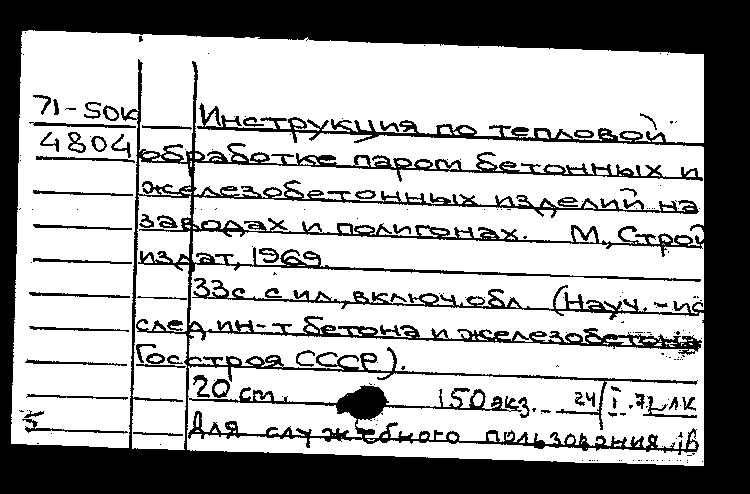 71-50к Инструкция по тепловой
4804 обработке паром бетонных и
железобетонных изделий на
заводах и полигонах. М., Строй
издат, 1969.
33с. с ил., включ. обл. (Науч.-ис
след. ин-т бетона и железобетона
Госстроя СССР).
20 ст. 150 экз. 24/I.71 ЛК
5 Для служебного пользования.